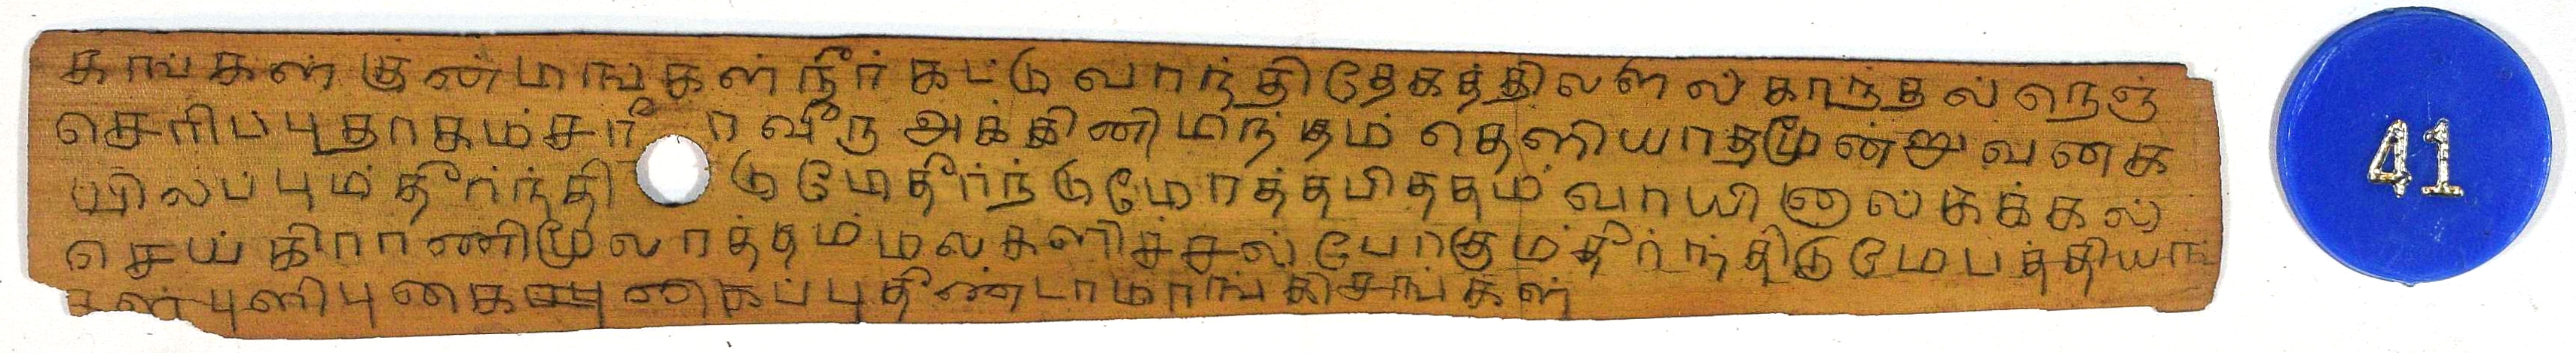 கங்கள் குன்மாங்கள் நீர்கட்டு வாந்திதேகத்திலளல் காந்தல் நெஞ்
செரிப்பு தாகம் சரீரவீரு அக்கினிமந்தம் தெளியாதமூன்று வகை
யிலப்பும் தீர்ந்திடுமே தீர்ந்டுமே ரத்தபிததம் வாயினால் கக்கல்
செய் கிராணி மூலரத்தம் மலகளிச்சல் போகும் தீர்ந்திடுமே பத்தியாங்
கள் புளி புகைப்பு கைப்பு தீண்டாமாங்கிசங்கள்
41